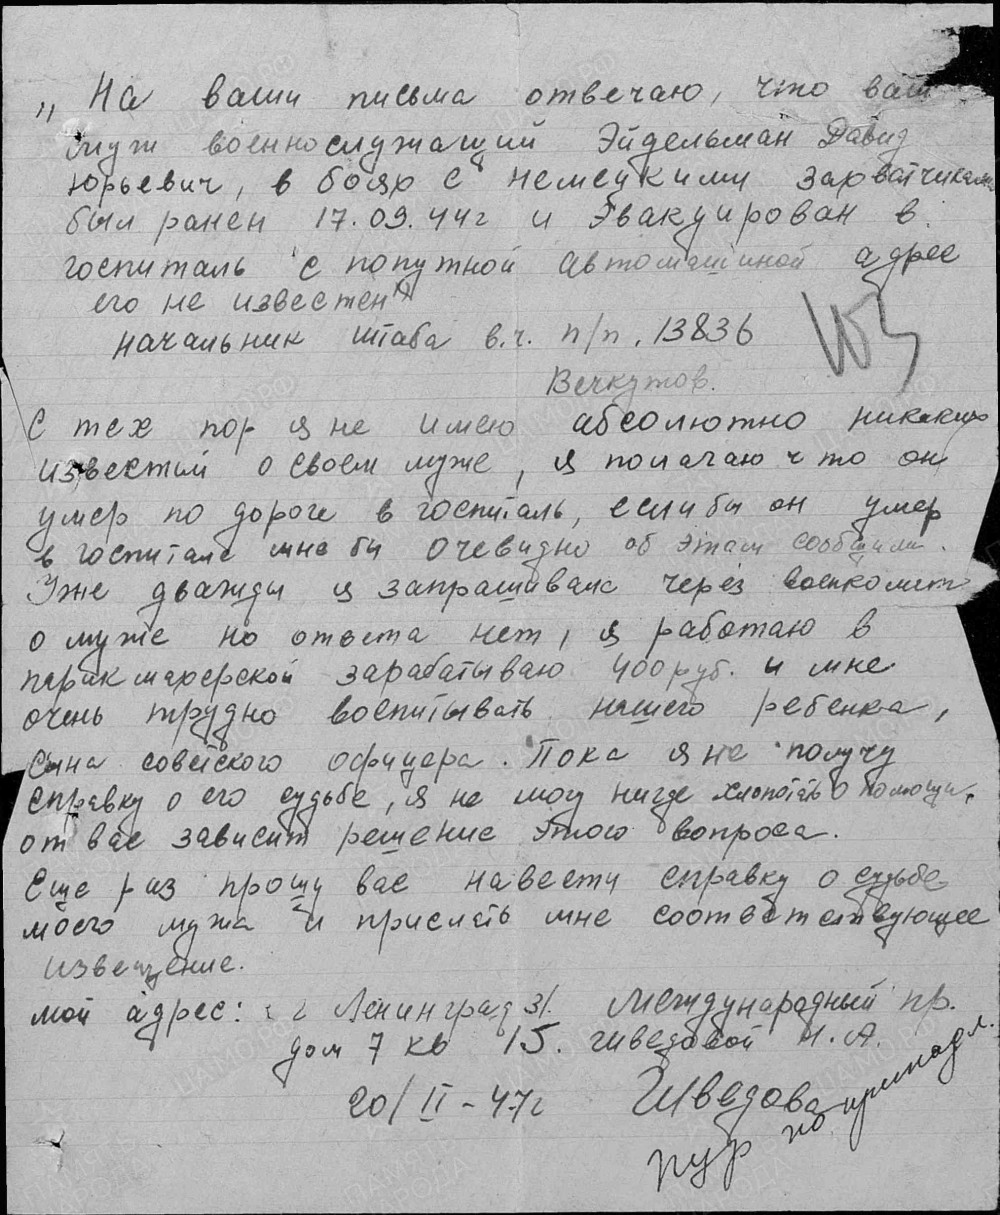 „ На ваши письма отвечаю, что ваш
муж военнослужащий Эйдельман Давид
Юрьевич, в боях с немецкими захватчиками
был ранен 17.09.44г и эвакуирован в
госпиталь с попутной автомашиной адрес
его не известен"
начальник штаба в.ч. п/п. 13836
Вечкутов.
С тех пор я не имею абсолютно никаких
известий о своем муже, я полагаю что он
умер по дороге в госпиталь, если бы он умер
в госпитале мне бы очевидно об этом сообщили.
Уже дважды я запрашивала через военкомат
о муже но ответа нет, я работаю в
парикмахерской зарабатываю 400 руб. и мне
очень трудно воспитывать нашего ребенка,
сына советского офицера. Пока я не получу
справку о его судьбе, я не могу нигде хлопотать о помощи,
от вас зависит решение этого вопроса.
Еще раз прошу вас навести справку о судьбе
моего мужа и прислать мне соответствующее
извещение.
мой адрес: г Ленинград 31. Международный пр.
дом 7 кв 15. Шведовой Н.А.
20/II-47г Шведова
ПУР по принадл.